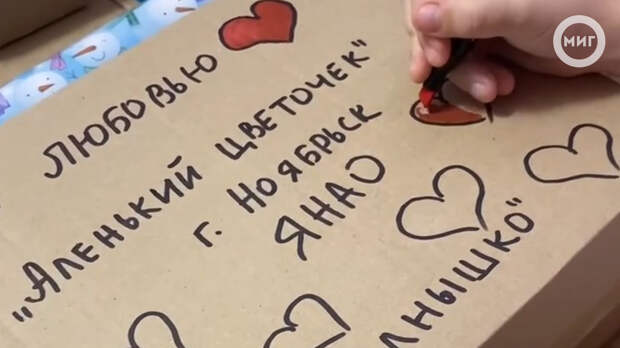 МИГ
ЛЮБОВЬЮ
"АЛЕНЬКИЙ ЦВЕТОЧЕК"
Г. НОЯБРЬСК
ЯНАО
ЛНЫШКО"